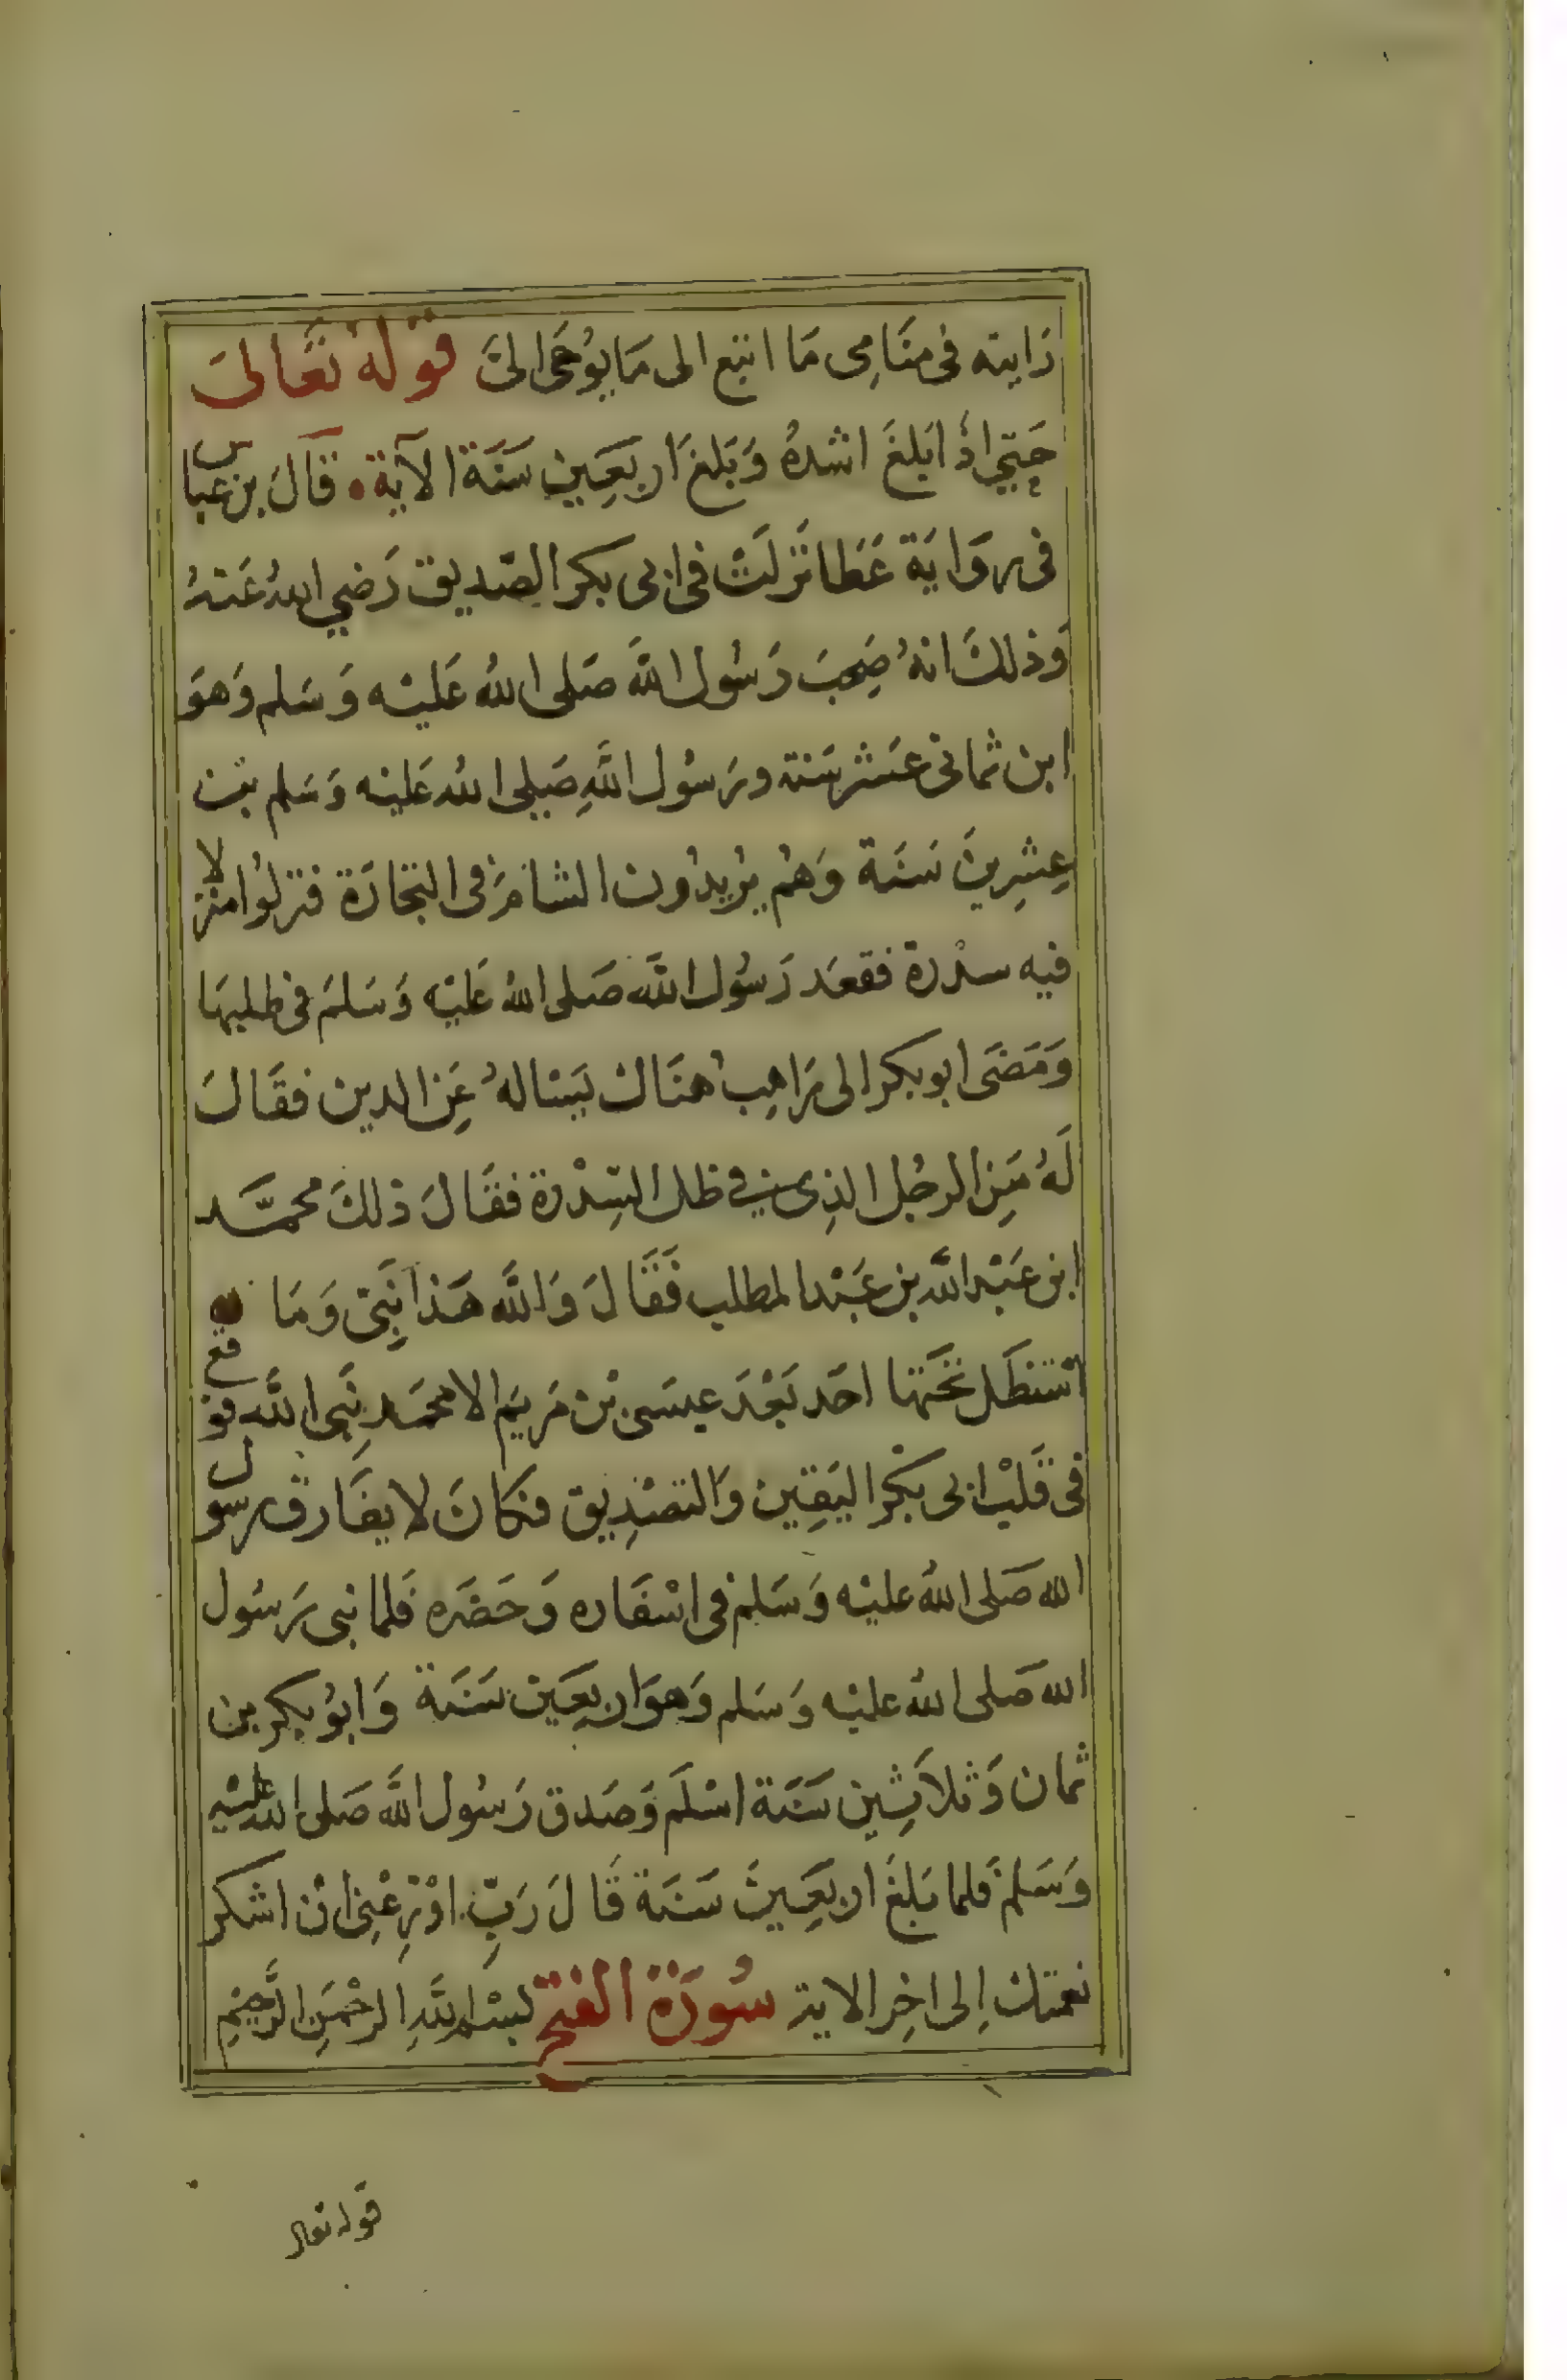 رَايته في منَامِى مَا اتبع الى مَا يوُحَى الىَّ قَولهُ تعَالىَ
حَتي اذْ ابَلغَ اشدهُ وَبَلغَ اربعَين سَنَة الآية ۰ قالَ بن عباس
في روَايَة عَطا نَزلَتْ في ابى بكر الصّديق رَضي اللهُ عَنهُ
وَذلكَ انهُ صَحِبَ رَسُول اللَّه صَلى اللهُ عَليْه وَسَلم وَهوَ
ابن ثمانى عَشر سَنة ورَسُول اللَّهِ صَلى اللهُ عَليْه وَسَلم بن
عِشرِينَ سَنَة وَهُم يرُيدُون الشامَ في التجَارَة فنزلوُا منزلا
فيه سدْرة فقعَد رَسُول اللَّه صَلى اللهُ عَليْه وَسَلمَ في ظلهَا
وَمَضَى ابو بكر الى رَاهِب هنَاك يَسْالهُ عَنِ الدين فقَالَ
لَهُ مَنِ الرجُل الذِى في ظل السِدْرة فقَالَ ذلكَ محمَّد
ابن عَبْد اللَّه بن عَبْد المطلب فَقَالَ وَاللَّه هَذا نَبِيّ وَمَا
اسْتظَل تحَتها احَد بَعْدَ عيسَى بْن مَريَم الا محمَد نَبِى اللَّه فوقع
في قَلبْ ابى بَكْر اليَقِين وَالتصْدِيق فكانَ لا يفَارق رسول
الله صَلى اللهُ عليْه وَسَلم في اسْفَاره وَحَضَره فَلما نبى رَسُول
الله صَلى اللهُ عليْه وَسَلم وَهوَ اربعَين سَنَة وَابوُ بكر بن
ثمان وَثلاَثِين سَنَة اسْلَم وَصَدق رَسُول اللَّه صَلى الله عليْه
وَسَلمْ فَلما بَلغَ اربعَينَ سَنَة قَالَ رَبِّ اوْزِعْنِى انْ اشكر
نعمتك اِلى اخِر الاية سُورَة الفتح بسْم اللَّهِ الرحْمَنِ الرَّحِيْمِ
قوله تعالى